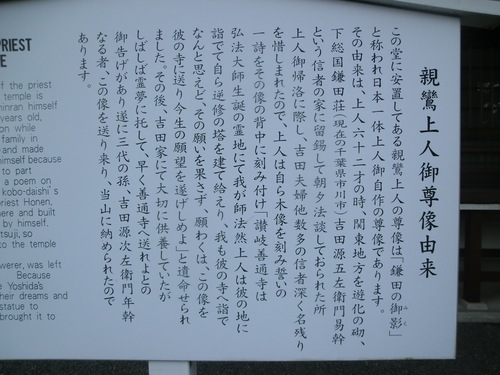 親鸞上人御尊像由来
この堂に安置してある親鸞上人の尊像は「鎌田の御影」
みえい
と称われ日本一体上人御自作の尊像であります。
その由来は、上人六十二才の時、関東地方を遊化の砌、
下総国鎌田荘（現在の千葉県市川市）吉田源五左衛門易幹
という信者の家に留錫して朝夕法談しておられた所
上人御帰洛に際し、吉田夫婦他数多の信者深く名残り
を惜しまれたので、上人は自ら木像を刻み誓いの
一詩をその像の背中に刻み付け「讃岐善通寺は
弘法大師生誕の霊地にて我が師法然上人は彼の地に
詣でて自ら逆修の塔を建て給えり、我も彼の寺へ詣で
なんと思えど、その願いを果さず、願わくは、この像を
彼の寺に送り今生の願望を遂げしめよ」と遺命せられ
ました。その後、吉田家にて大切に供養していたが
しばしば霊夢に托して、早く善通寺へ送れよとの
御告げがあり遂に三代の孫、吉田源次左衛門年幹
なる者、この像を送り来り、当山に納められたので
あります。
PRIEST
E
f the priest
temple is
hinran himself
years old,
on while
family in
and made
himself because
to part
a poem on
kobo-daishi's
riest Honen,
here and built
by himself.
tsuji, so
to the temple
owerer, was left
Because
e Yoshida's
heir dreams and
statue to
brought it to